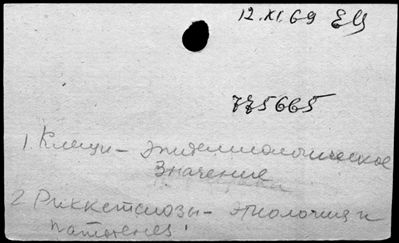 12.XI.69 ЕЦ
775665
1. Клещи - эпидемиологическое
значение
2. Риккетсиозы - этиология и
патогенез